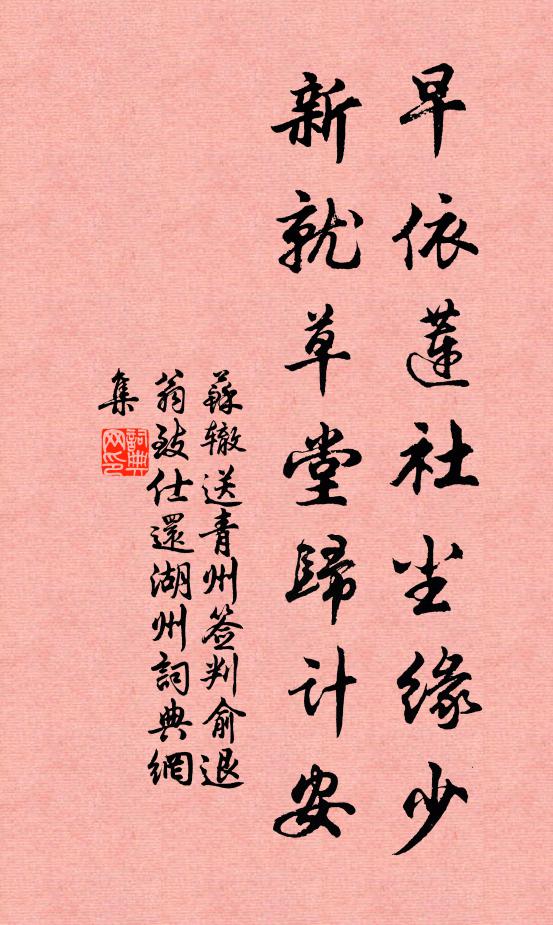 早依蓮社尘緣少
新就草堂歸計安
蘇辙送青州签判俞退
翁致仕還湖州詞典網
集
詞典
网印